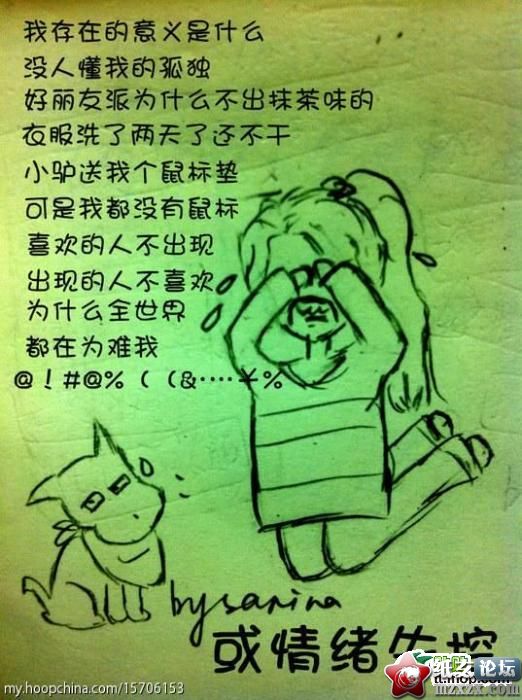 我存在的意义是什么
没人懂我的孤独
好丽友派为什么不出抹茶味的
衣服洗了两天了还不干
小驴送我个鼠标垫
可是我都没有鼠标
喜欢的人不出现
出现的人不喜欢
为什么全世界
都在为难我
@！#@%（（&……￥%
by sarina
或情绪失控
论坛
mzxzx.com
my.hoopchina.com/15706153